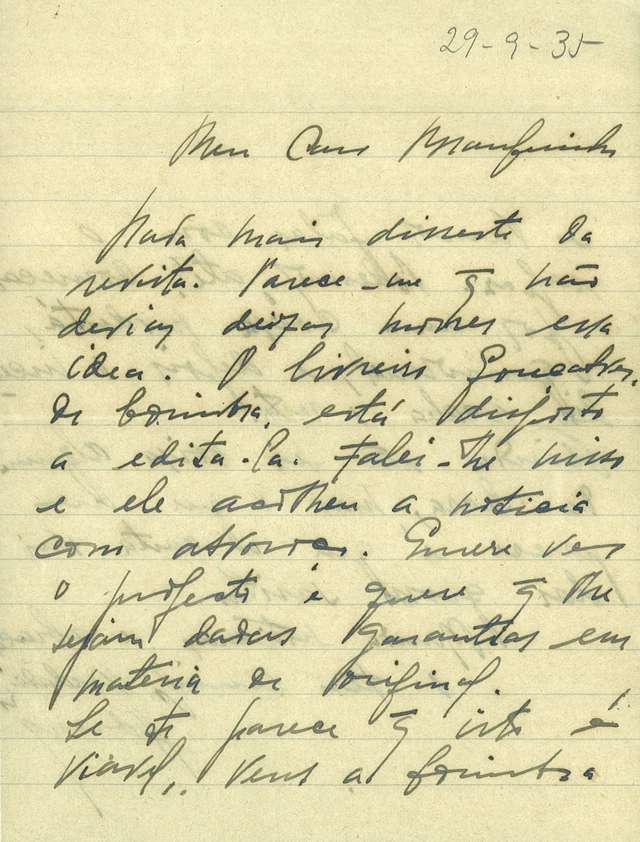 29-9-35
Meu Caro
Nada mais disseste da
revista. Parece-me q̃ não
devias deixar morrer essa
idea. O livreiro Gonçalves,
de Coimbra, está disposto
a edita-la. Falei-lhe nisso
e ele acolheu a noticia
com alvoroço. Quere ver
o projecto e quere q̃ lhe
sejam dadas garantias em
materia de original.
Se te parece q̃ isto é
viavel, vens a Coimbra